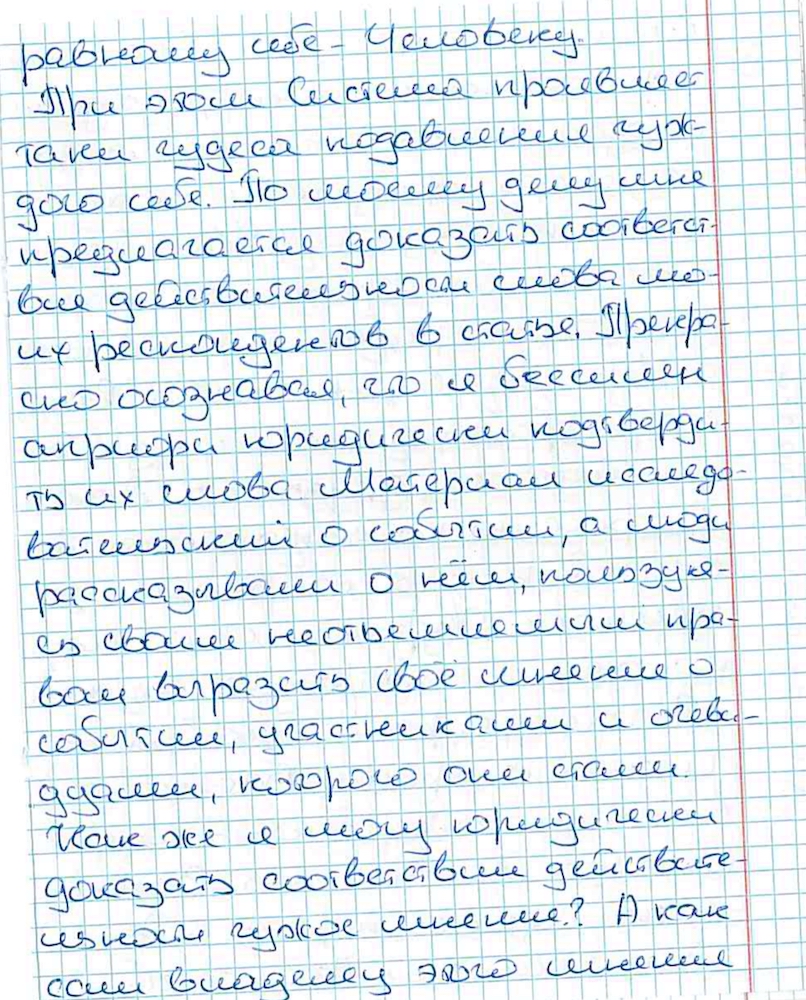 равному себе – Человеку.
При этом Система проявляет
таки чудеса подавления чуж-
дого себе. По моему делу мне
предлагается доказать соответст-
вие действительности слова мо-
их респондентов в статье. Прекра-
сно осознавая, что я бессилен
априори юридически подтверди-
ть их слова Материал исследо-
вательский о событии, а люди
рассказывали о нём, пользуя-
сь своим неотъемлемым пра-
вом выразить своё мнение о
событии, участниками и очеви-
дцами, которого они стали.
Как же я могу юридически
доказать соответствии действите-
льности чужое мнение? А как
сам владелец этого мнения